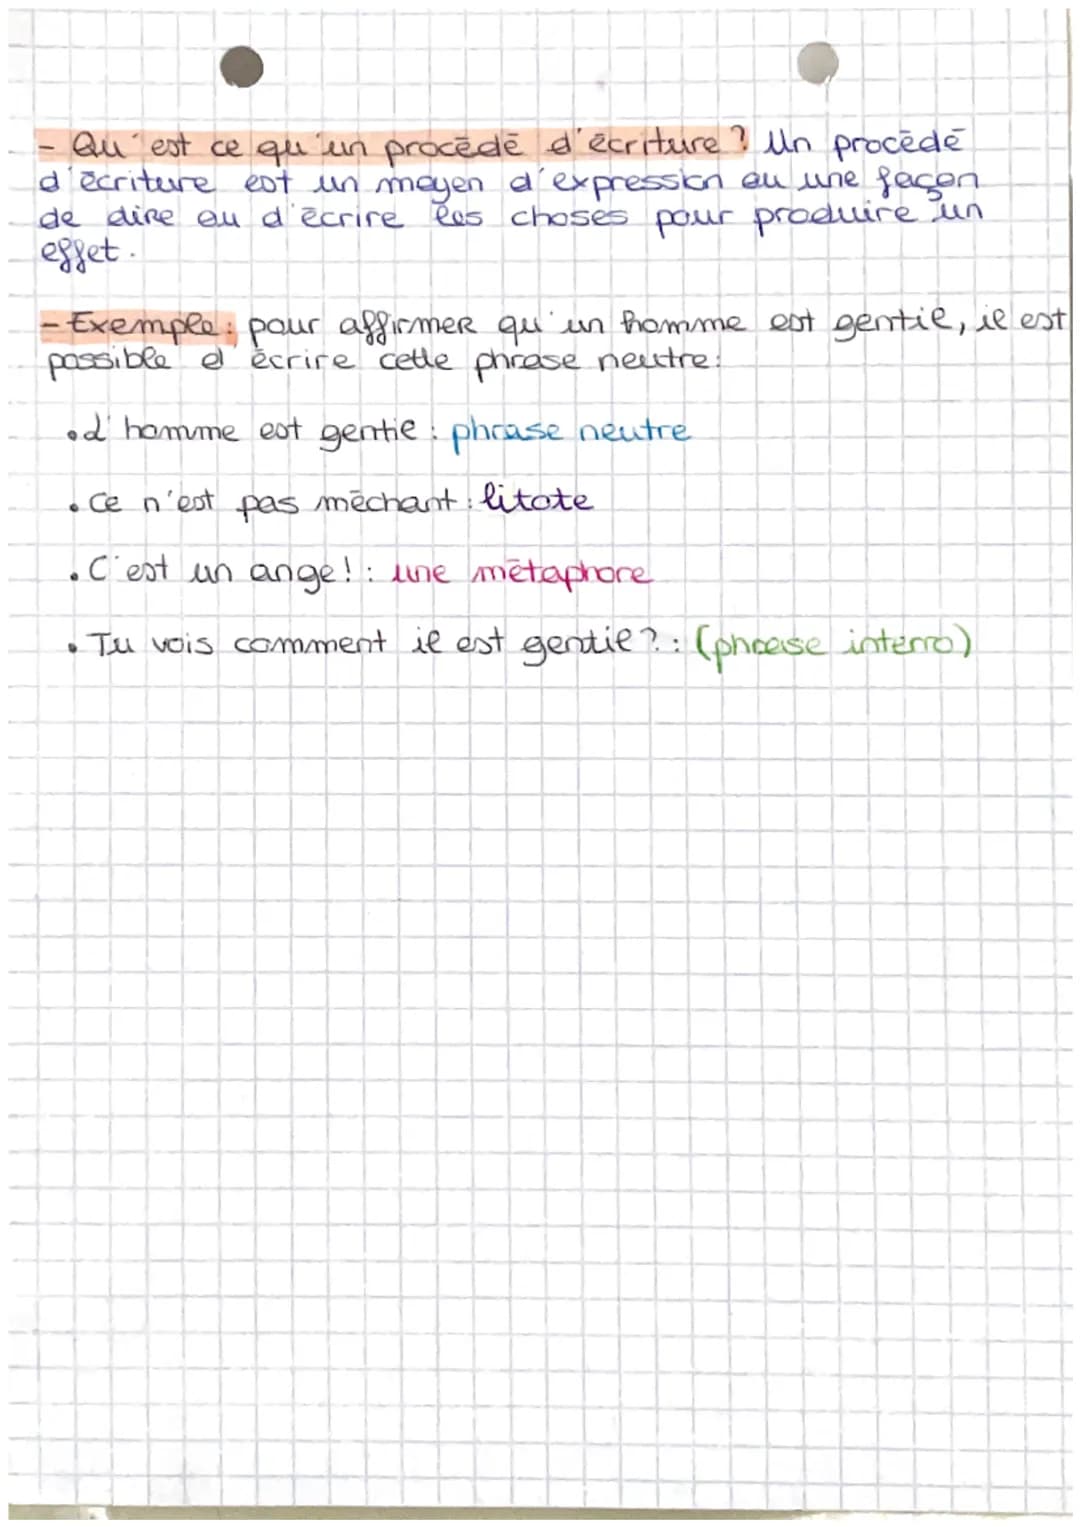 - Qu'est ce qu'un procédé d'écriture ? Un procédé
d'écriture est un moyen d'expression ou une façon
de dire ou d'écrire les choses pour produire un
effet.
- Exemple : pour affirmer qu'un homme est gentil, il est
possible d'écrire cette phrase neutre :
• L'homme est gentil : phrase neutre
• Ce n'est pas méchant : litote
• C'est un ange ! : une métaphore
• Tu vois comment il est gentil ? : (phrase interro)